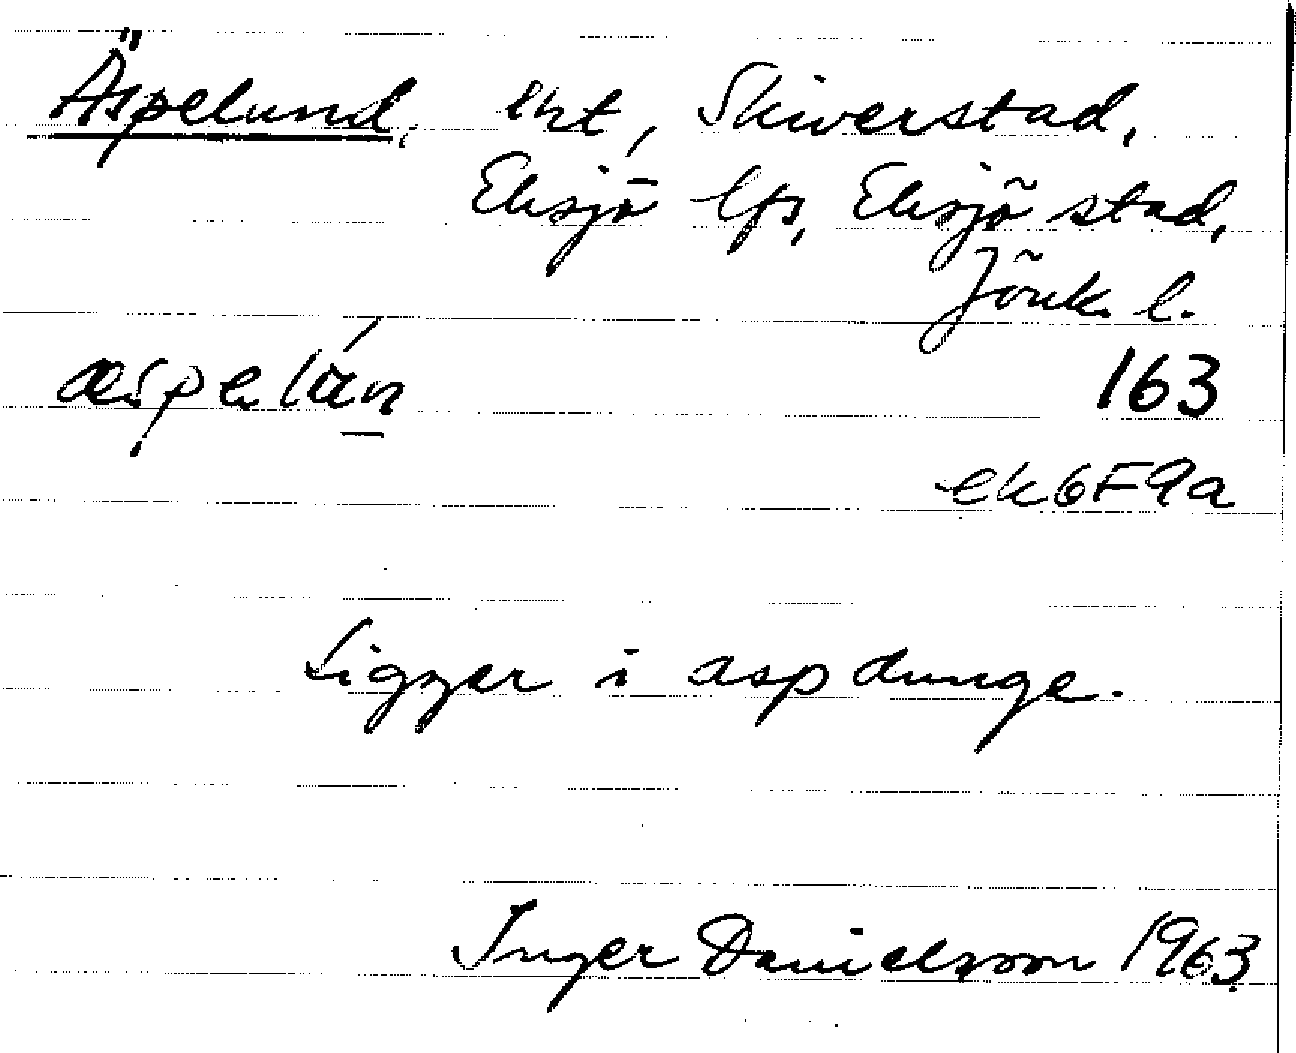 Äspelund, lht, Skiverstad,
Eksjö lfs, Eksjö stad,
Jönk. l.
æspelún
163
ek6F9a
Ligger i aspdunge.
Inger Danielsson 1963